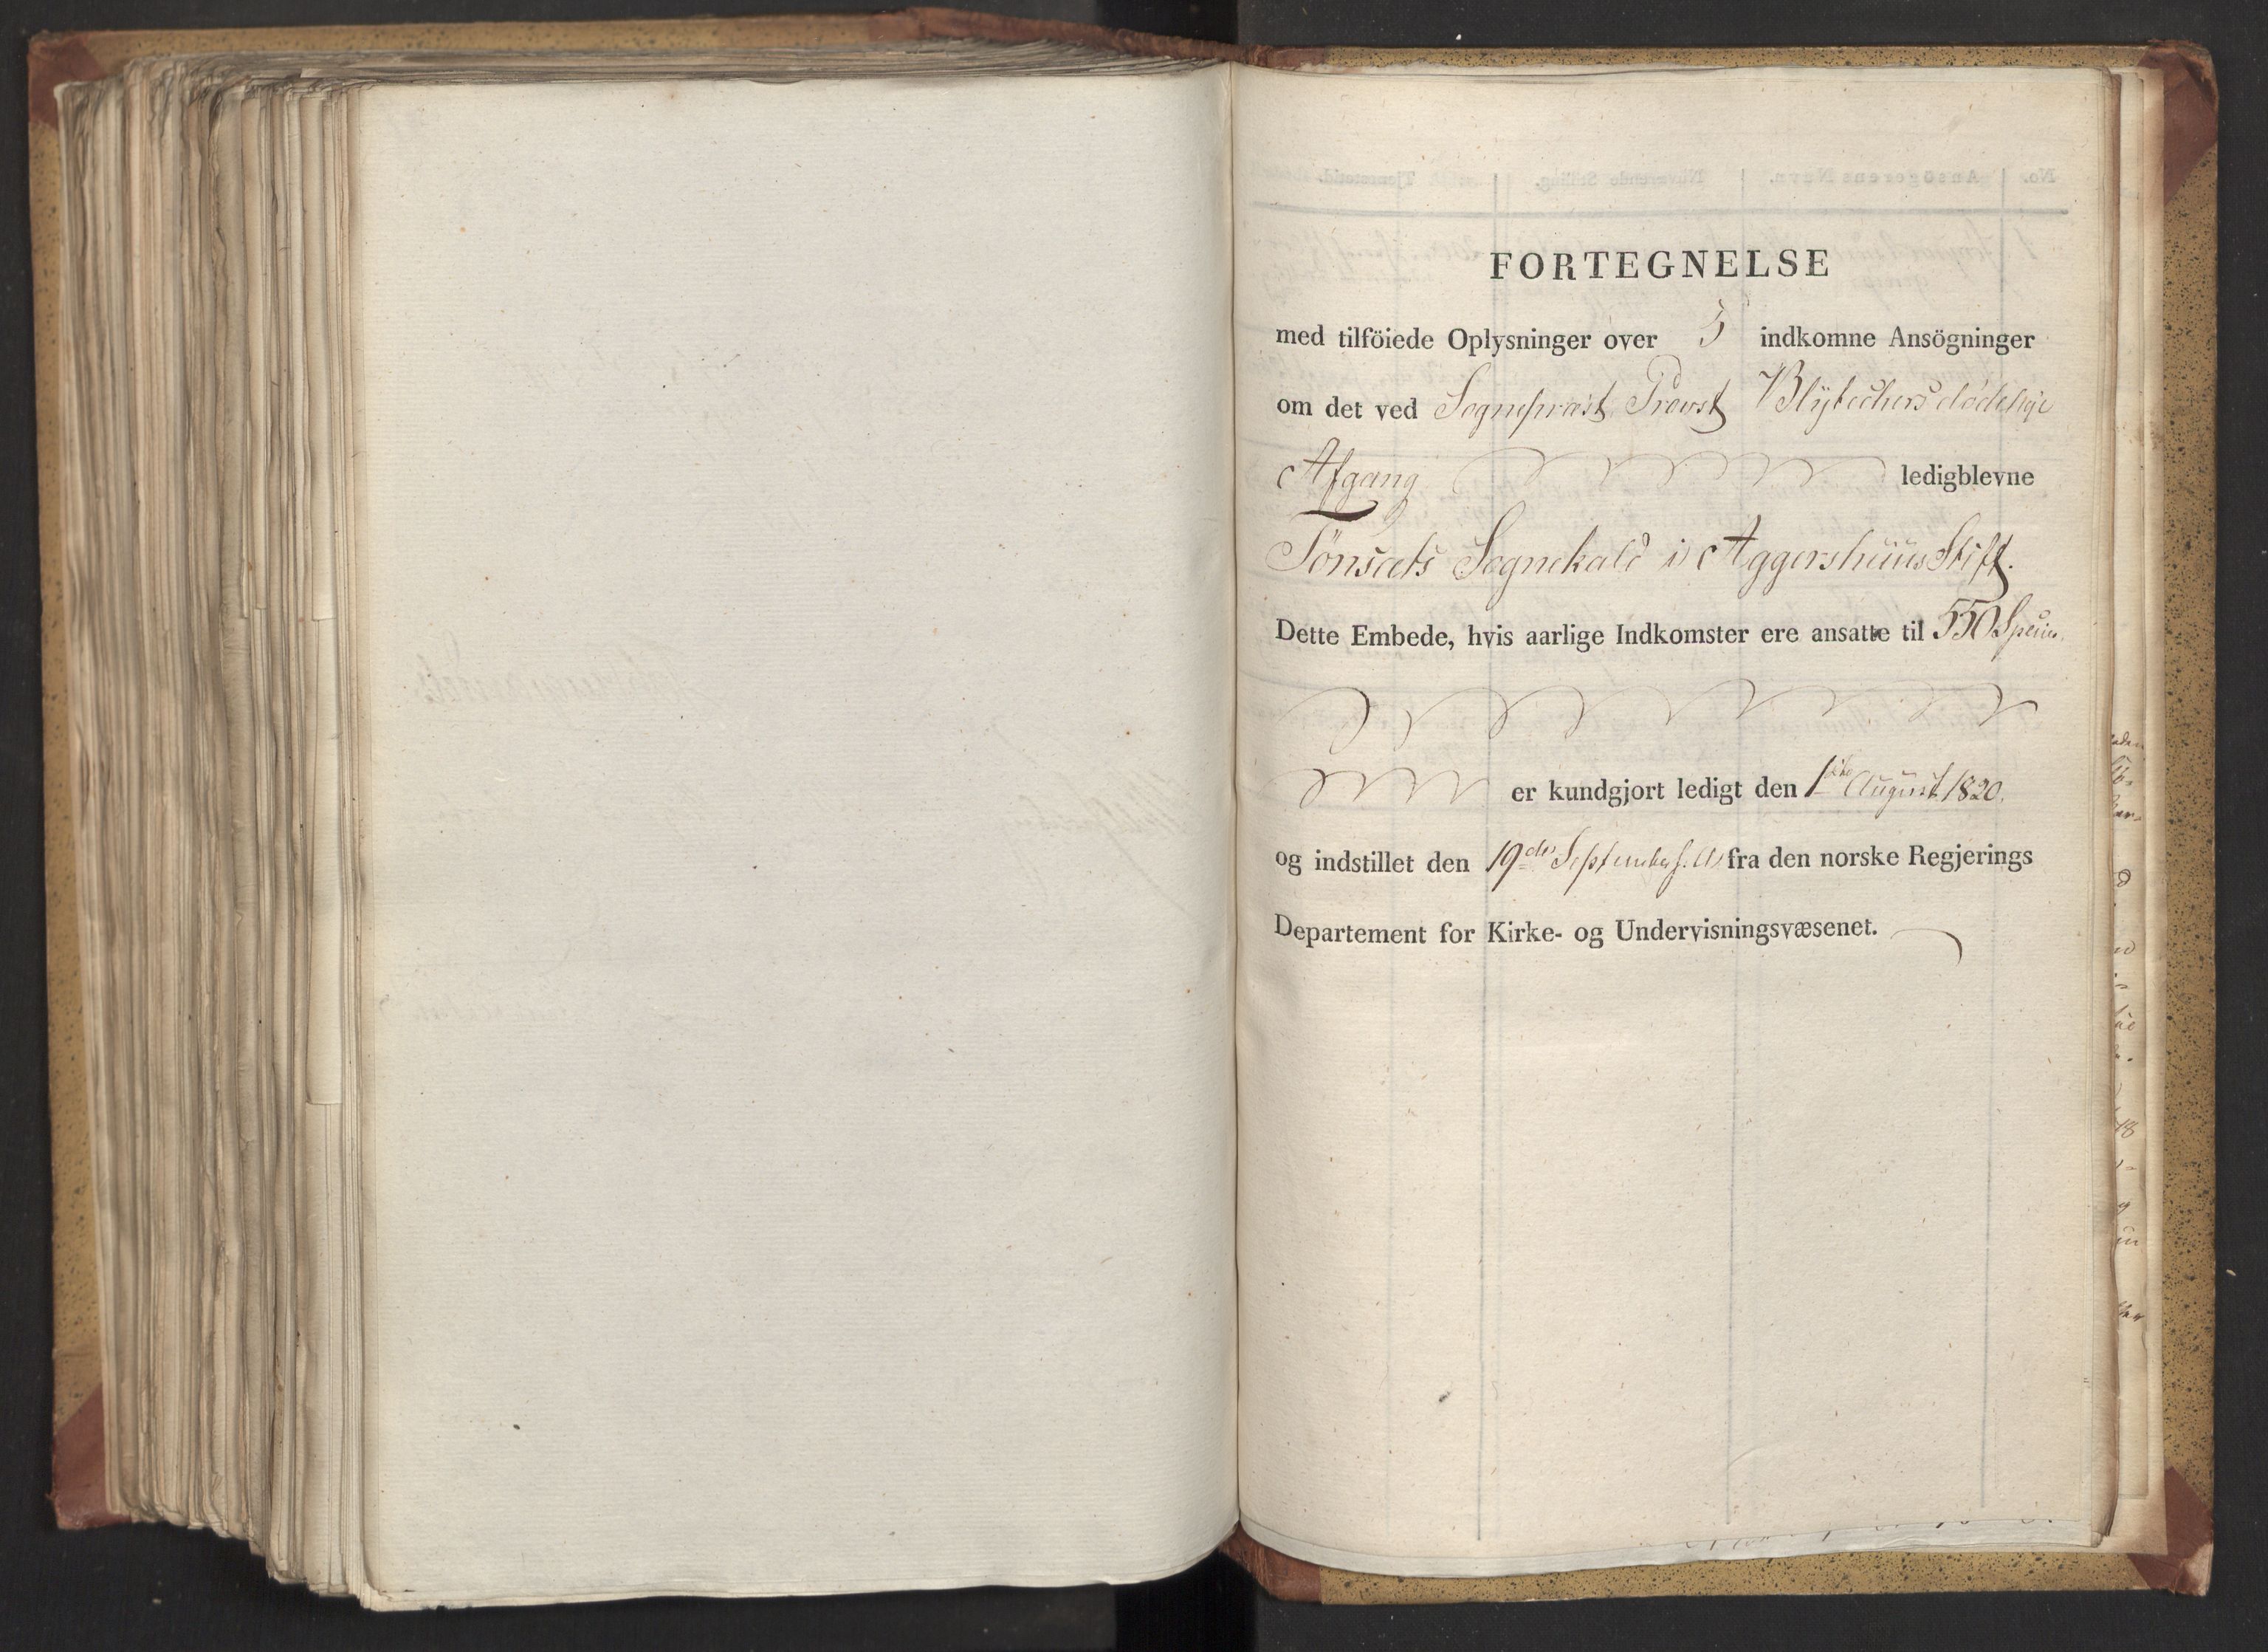 FORTEGNELSE
med tilföiede Oplysninger over 5 indkomne Ansögninger
om det ved Sognepræst Provst Blytechers dødelige
Afgang ledigblevne
Tönsæts Sognekald i Aggershuus Stift.
Dette Embede, hvis aarlige Indkomster ere ansatte til 550 Specier
er kundgjort ledigt den 1ste August 1820.
og indstillet den 19de September s. A. fra den norske Regjerings
Departement for Kirke- og Undervisningsvæsenet.